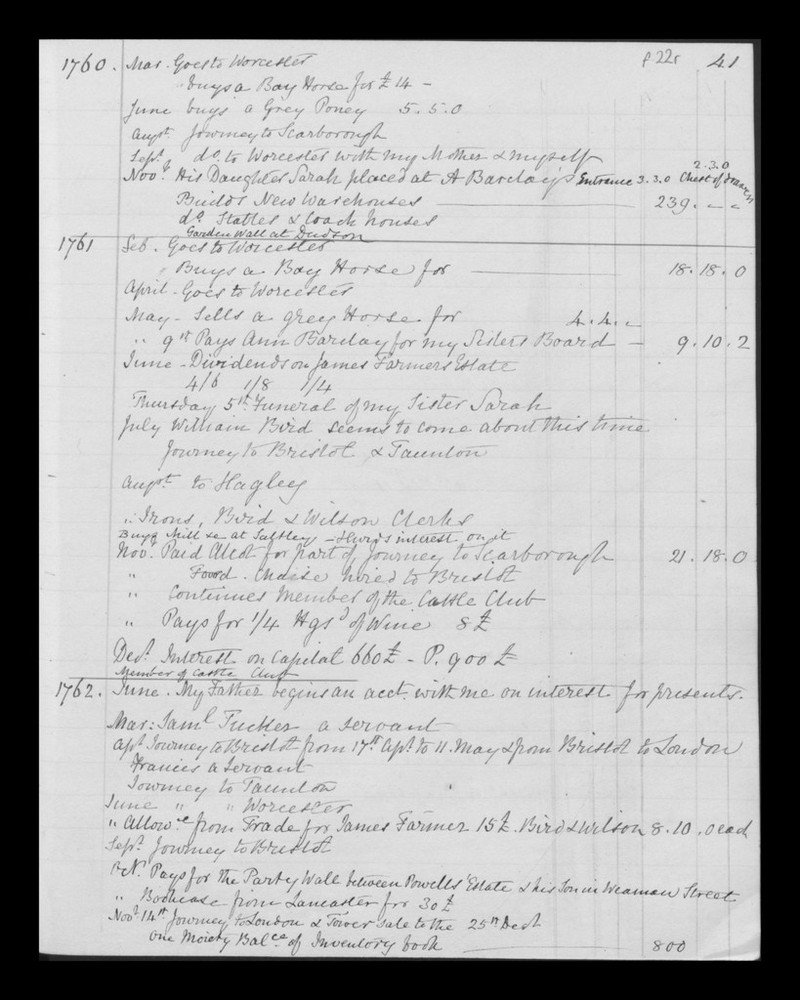 p 22r 41
1760. Mar. Goes to Worcester
buys a Bay Horse for £14 -
June buys a Grey Poney 5.5.0
Augst. Journey to Scarborough
Sept. do. to Worcester with my Mother & myself
2.3.0
Novr. His Daughter Sarah placed at A Barclay's Entrance 3.3.0 Chest of drawers
Builds New Warehouses 239. " "
do. Stables & Coach houses
Garden Wall at Dudson
1761 Feb. Goes to Worcester
Buys a Bay Horse for 18.18.0
April - Goes to Worcester
May - Sells a grey Horse for 4.4. -
" 9th Pays Ann Barclay for my Sisters Board - 9.10.2
June - Dividends on James Farmers Estate
4/6 1/8 1/4
Thursday 5th. Funeral of my Sister Sarah
July William Bird seems to come about this time
Journey to Bristol & Taunton
Augst to Hagley
" Irons, Bird & Wilson Clerks
Buys Mill &c at Saltley - interest on it
Novr. Paid for part of Journey to Scarborough 21.18.0
" Chaise hired to Bristol
" Continues Member of the Castle Club
" Pays for 1/4 Hgsd of Wine 8£
Decr. Interest on Capital 660£ - P. 900£
Member of Castle Club
1762. June. My Father begins an acct. with me on interest for presents.
Mar: Saml Tucker a servant
Apl Journey to Bristol from 17th Apl. to 11. May & from Bristol to London
Francis a Servant
Journey to Taunton
June " " Worcester
" Allowce from Trade for James Farmer 15£. Bird & Wilson 8.10.0 each
Sepr. Journey to Bristol
Pays for the Party Wall between Powells Estate & his Son in Weaman Street
" Bookcase from Lancaster for 30£
Novr 14th Journey to London & Tower sale to the 25th Decr
one Moiety Balce of Inventory book 800